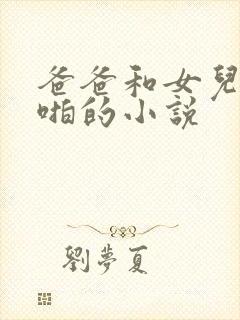 爸爸和女兒
啪的小説
劉夢夏